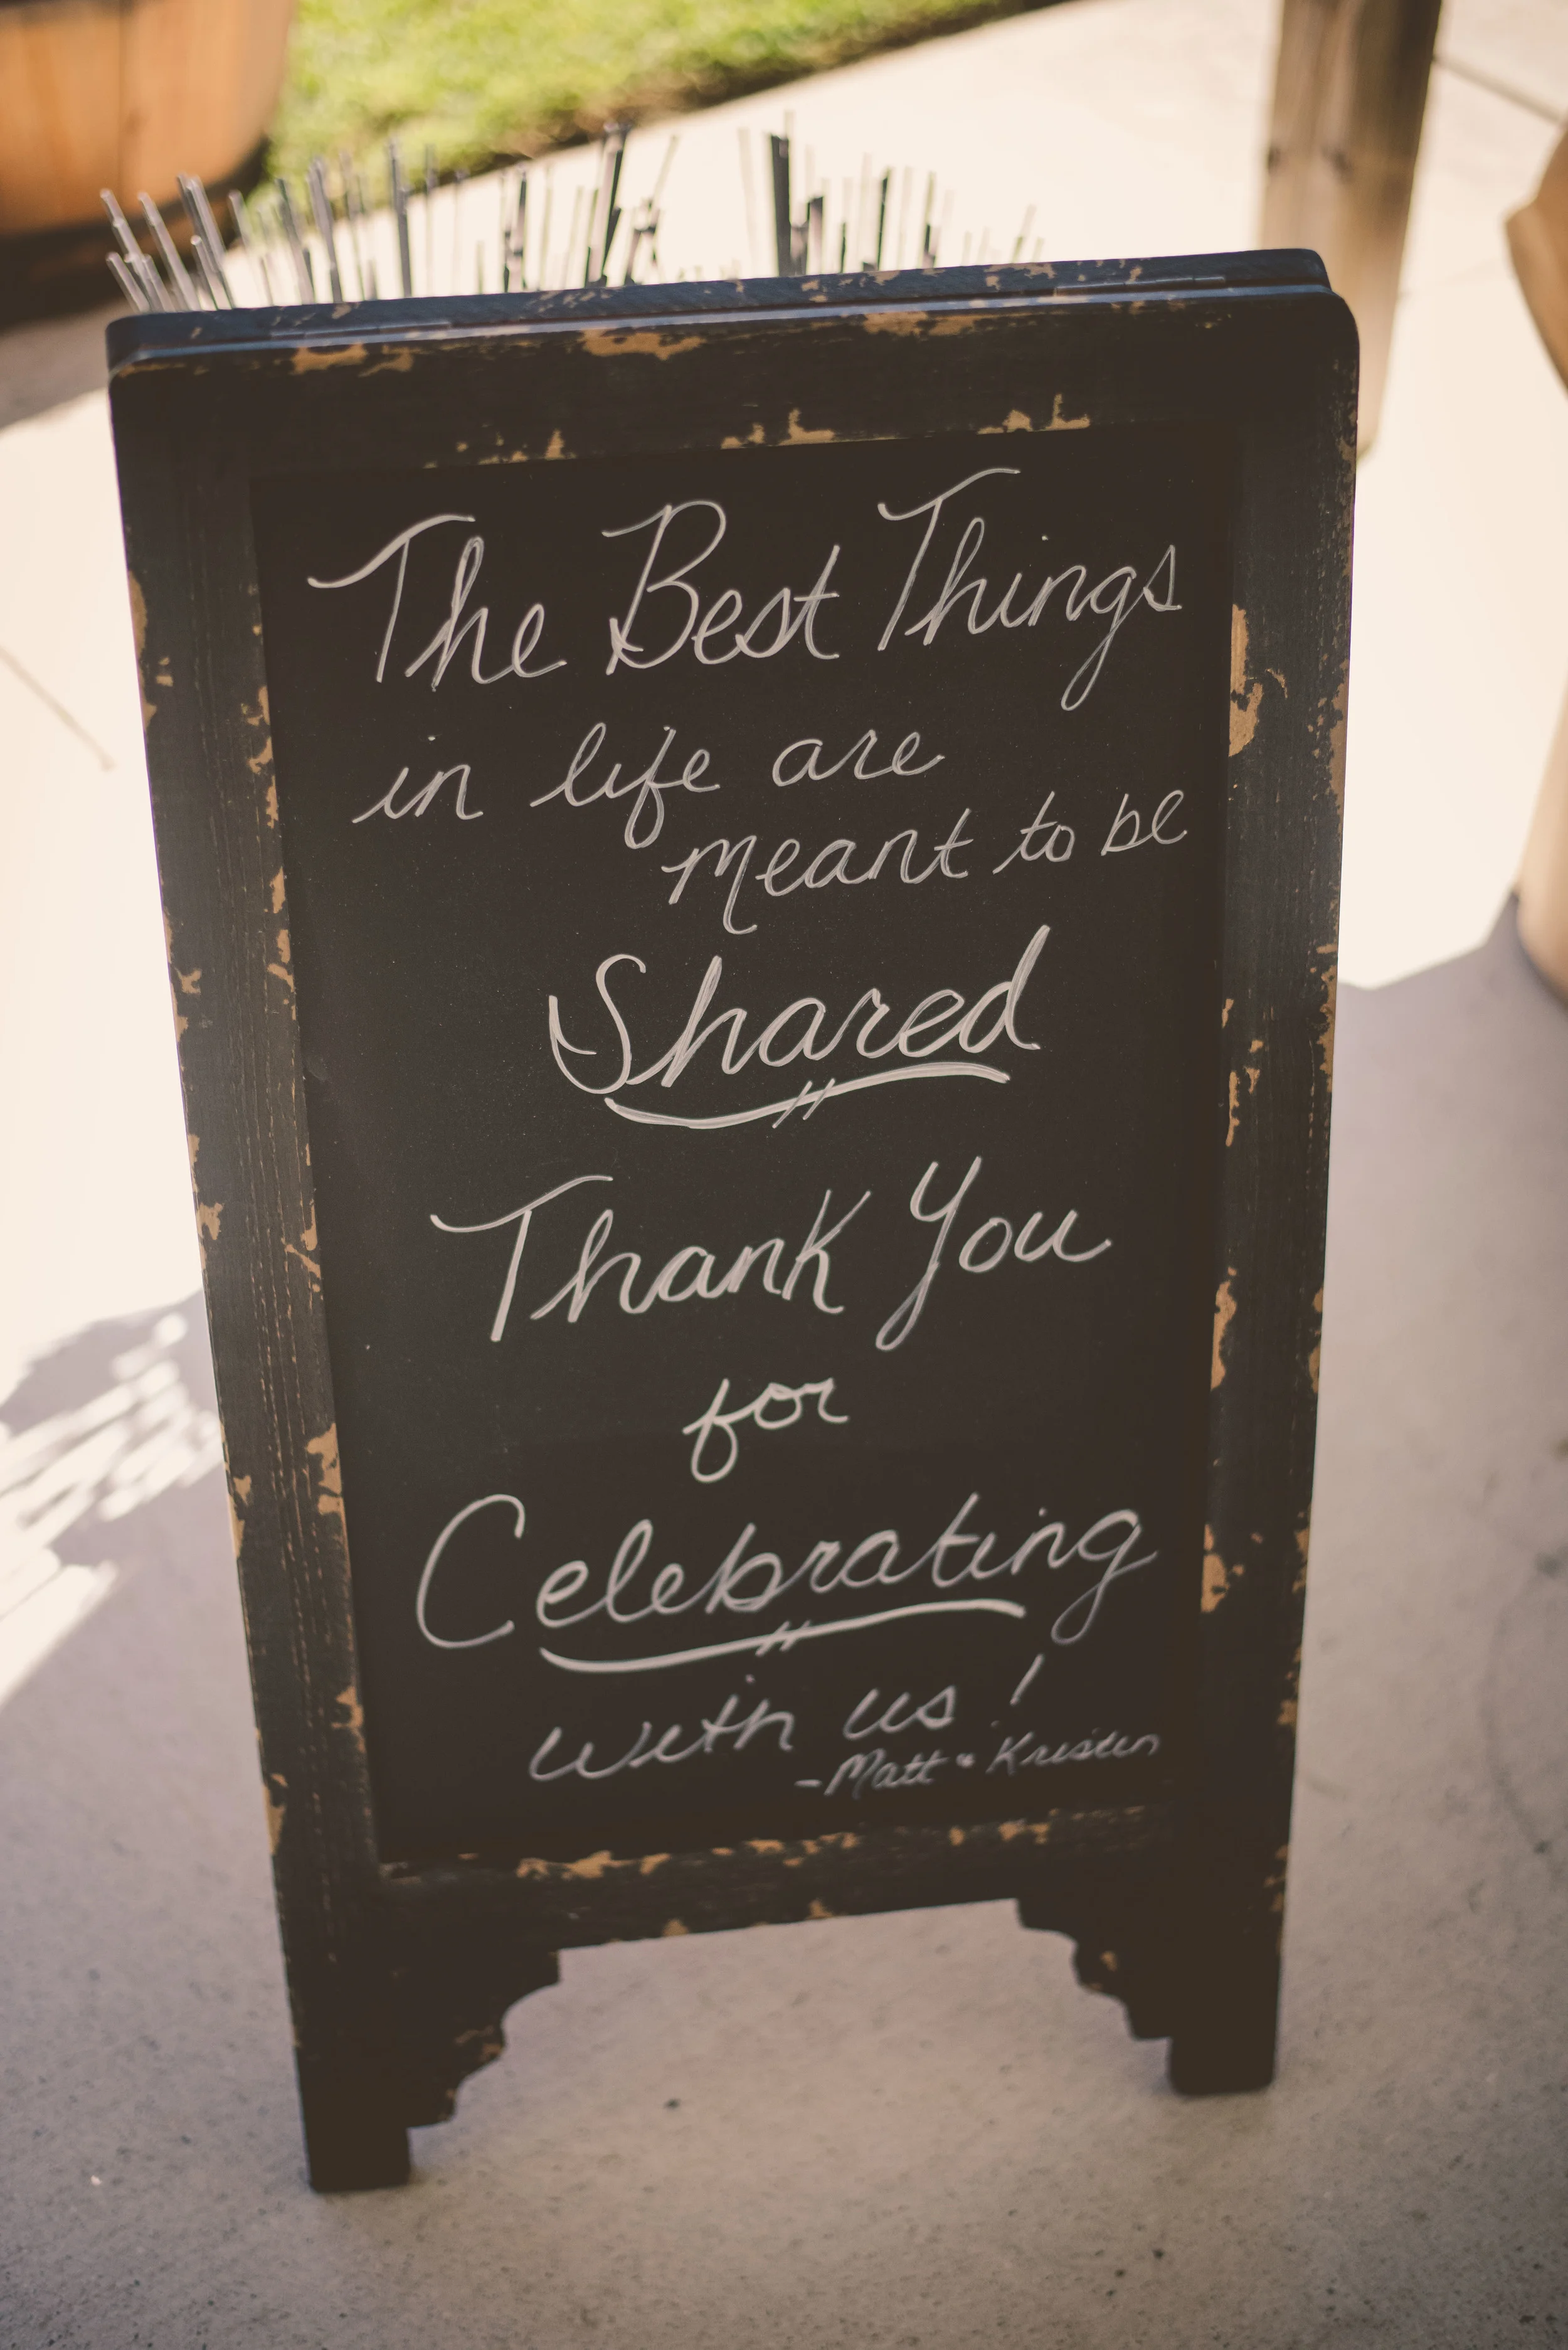 The Best Things
in life are
meant to be
Shared
Thank You
for
Celebrating
with us!
-Matt & Kristen